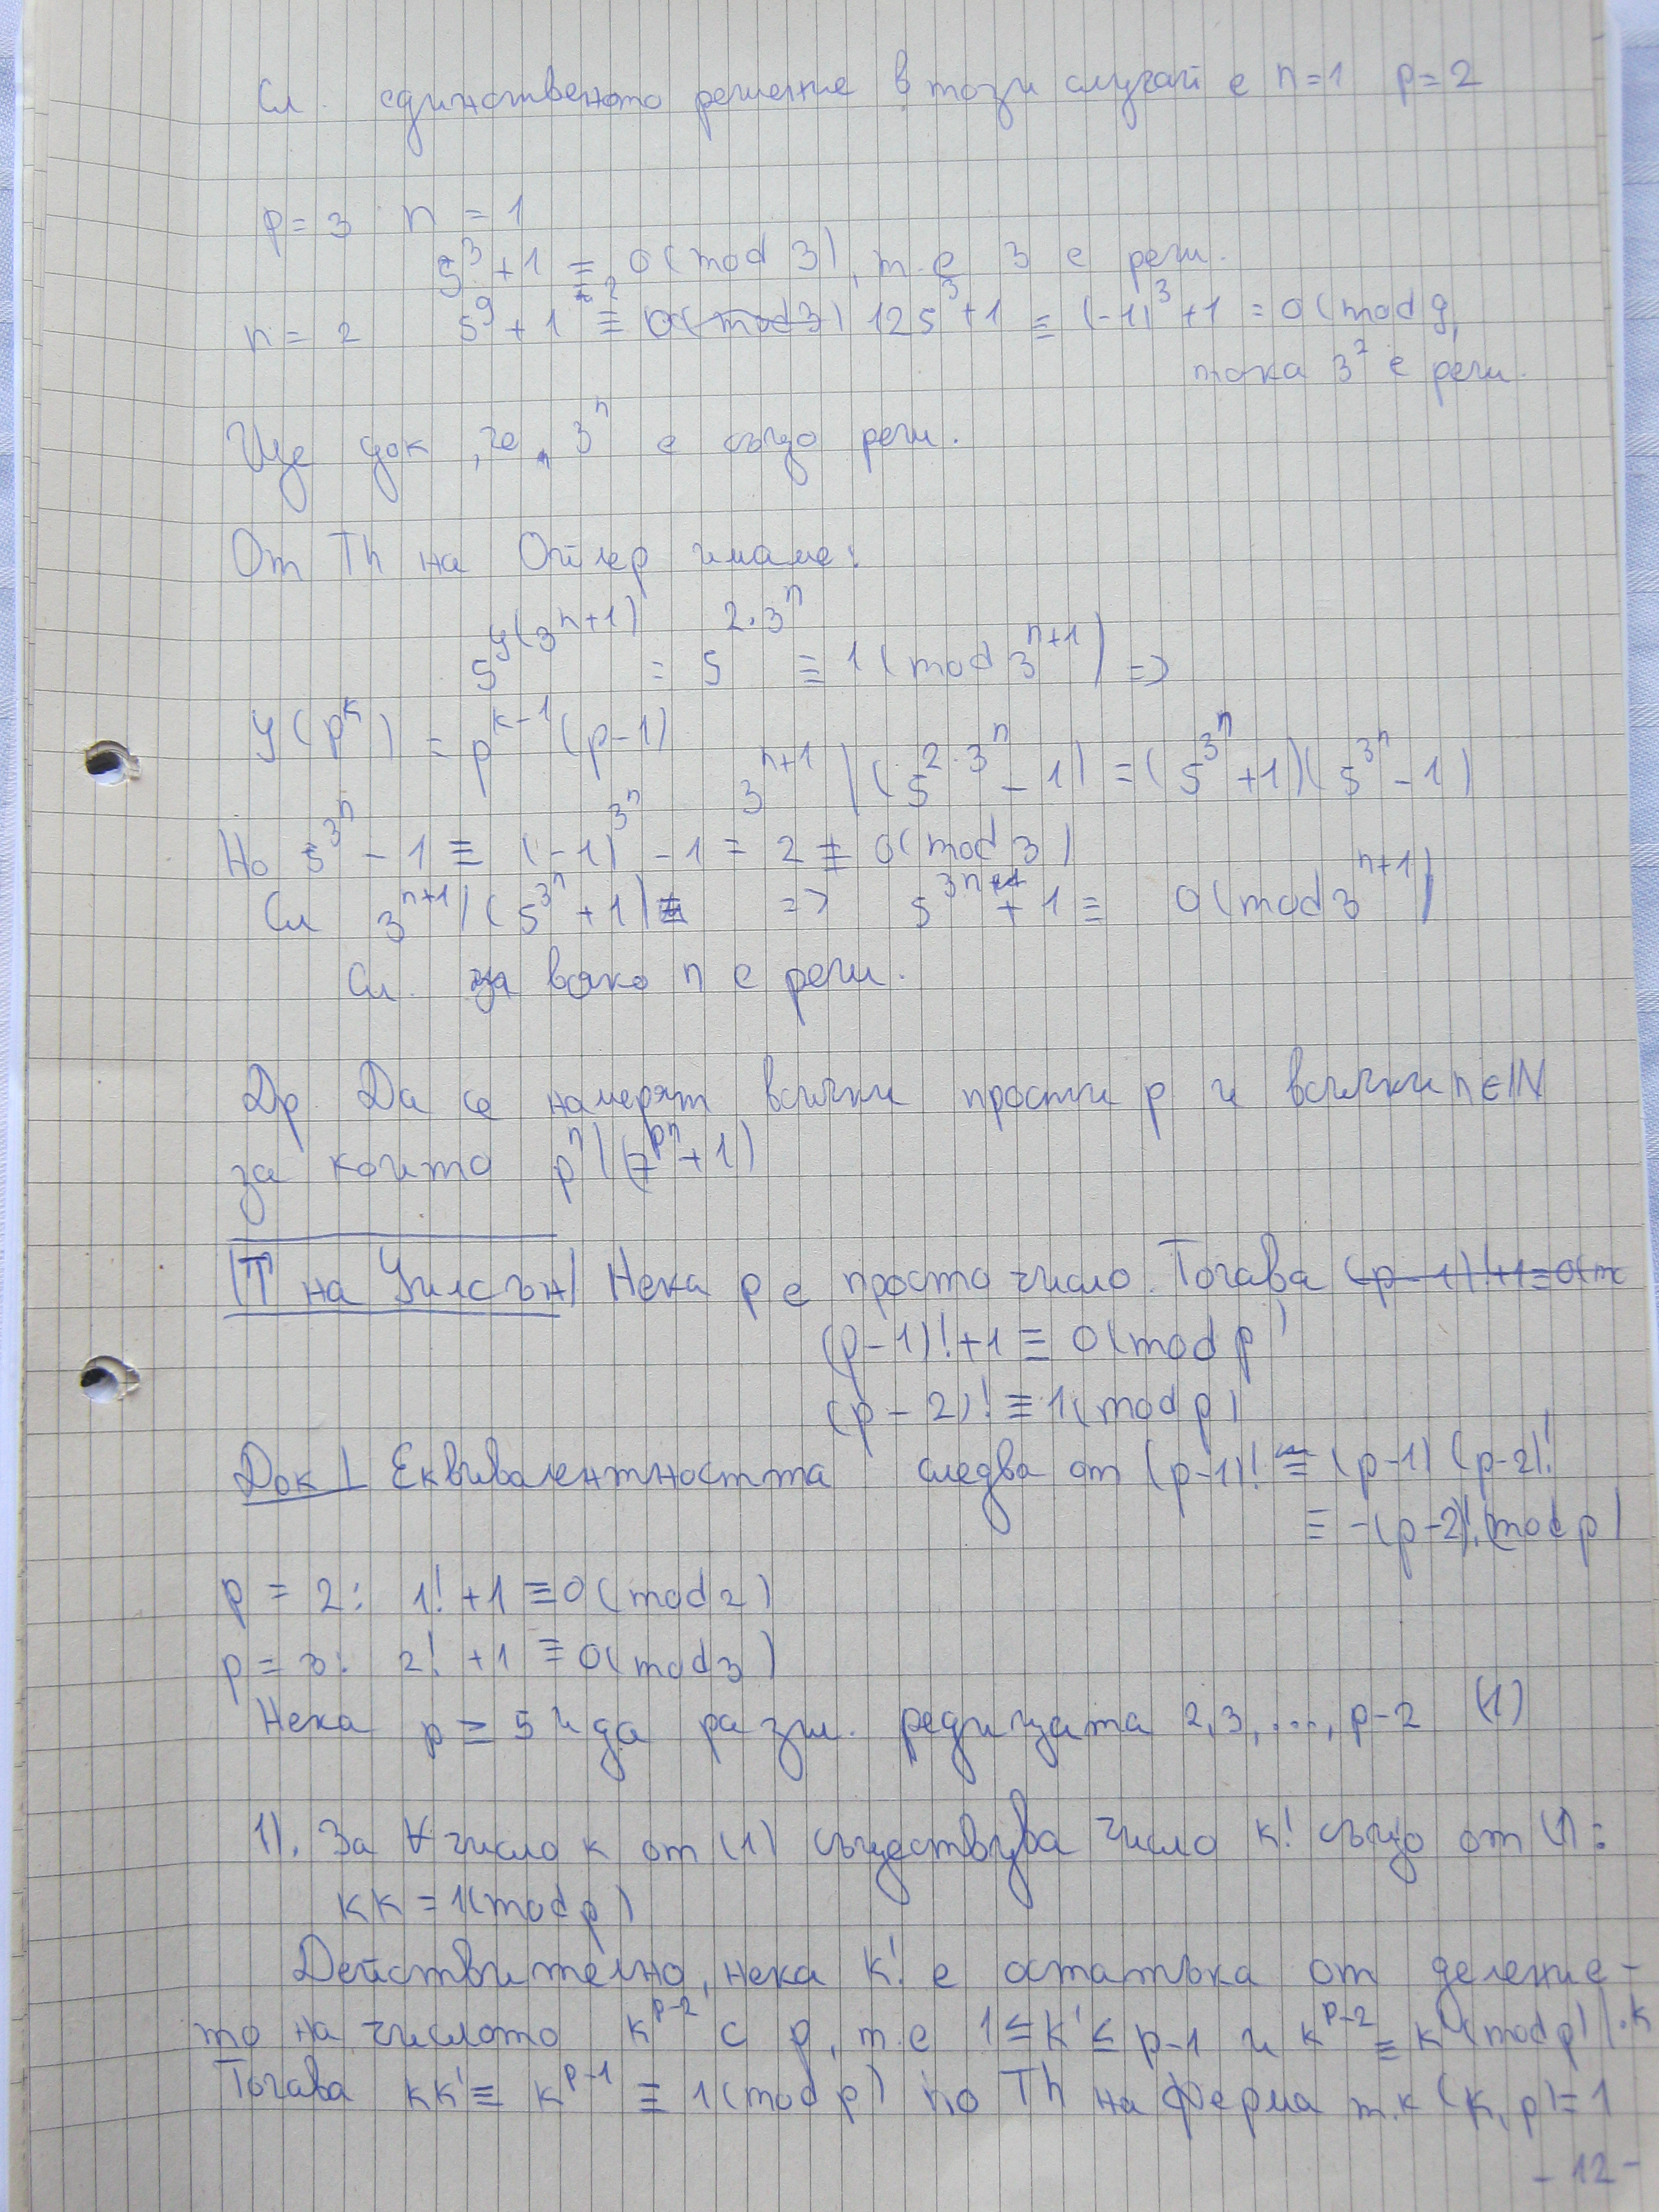 Сл. единственото решение в този случай е n=1 p=2
p=3 n=1
5³+1 ≡ 0(mod 3), т.е 3 е реш.
n=2 5⁹+1 ≡ 0(mod 3) 125³+1 ≡ (-1)³+1 = 0(mod 9,
така 3² е реш.
Ще док, че 3ⁿ е също реш.
От Th на Ойлер имаме:
5^φ(3^(n+1)) = 5^(2.3ⁿ) ≡ 1(mod 3^(n+1)) =>
φ(p^k) = p^(k-1)(p-1)
3^(n+1) | (5^(2.3ⁿ) - 1) = (5^(3ⁿ)+1)(5^(3ⁿ)-1)
Но 5^(3ⁿ) - 1 ≡ (-1)^(3ⁿ) - 1 = 2 ≠ 0(mod 3)
Сл 3^(n+1) | (5^(3ⁿ)+1) => 5^(3n) + 1 ≡ 0(mod 3^(n+1))
Сл. за всяко n е реш.
Др Да се намерят всички прости p и всички n∈ℕ
за които pⁿ|(7^(pⁿ)+1)
|Т на Уилсън| Нека p е просто число. Тогава (p-1)!+1≡0(m
(p-1)!+1 ≡ 0(mod p)
(p-2)! ≡ 1(mod p)
Док| Еквивалентността следва от (p-1)! ≡ (p-1)(p-2)!
≡ -(p-2)!(mod p)
p = 2: 1!+1 ≡ 0(mod 2)
p = 3: 2! +1 ≡ 0(mod 3)
Нека p ≥ 5 и да разгл. редицата 2,3,...,p-2 (1)
1). За ∀ число k от (1) съществува число k' също от (1):
kk = 1(mod p)
Действително, нека k' е остатъка от деление-
то на числото k^(p-2) с p, т.е 1≤k'≤p-1 и k^(p-2) ≡ k'(mod p) |.k
Тогава kk' ≡ k^(p-1) ≡ 1(mod p) по Th на Ферма т.к (k,p)=1
-12-